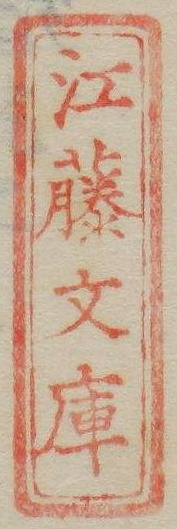 江藤文庫